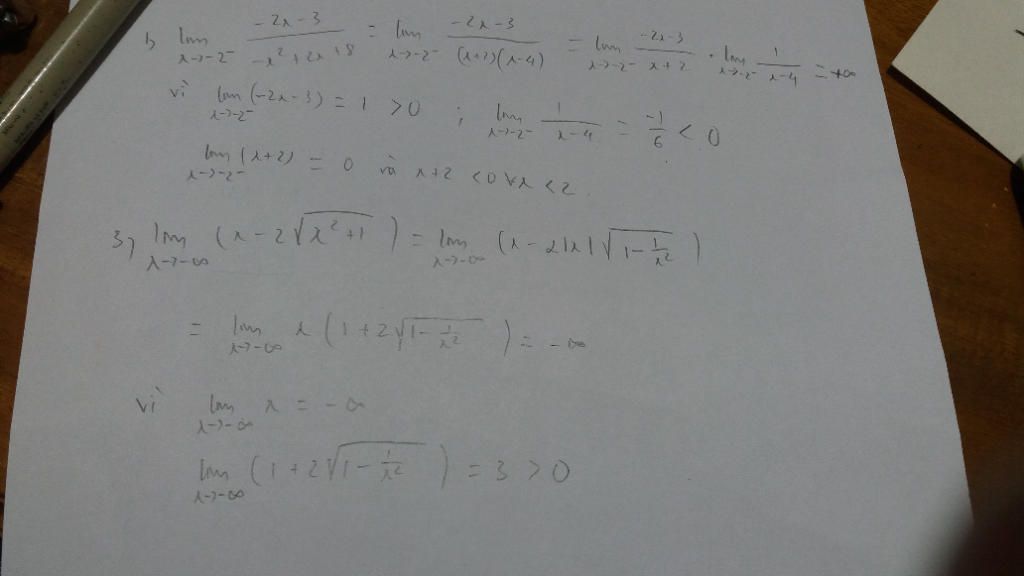 b, lim x→-2⁻ (-2x-3)/(-x²+2x+8) = lim x→-2⁻ (-2x-3)/((x+2)(x-4)) = lim x→-2⁻ (-2x-3)/(x+2) · lim x→-2⁻ 1/(x-4) = +∞
vì lim x→-2⁻ (-2x-3) = 1 > 0 ; lim x→-2⁻ 1/(x-4) = -1/6 < 0
lim x→-2⁻ (x+2) = 0 và x+2 < 0 ∀x < 2.
3, lim x→-∞ (x-2√(x²+1)) = lim x→-∞ (x-2|x|√(1-1/x²))
= lim x→-∞ x(1+2√(1-1/x²)) = -∞
vì lim x→-∞ x = -∞
lim x→-∞ (1+2√(1-1/x²)) = 3 > 0